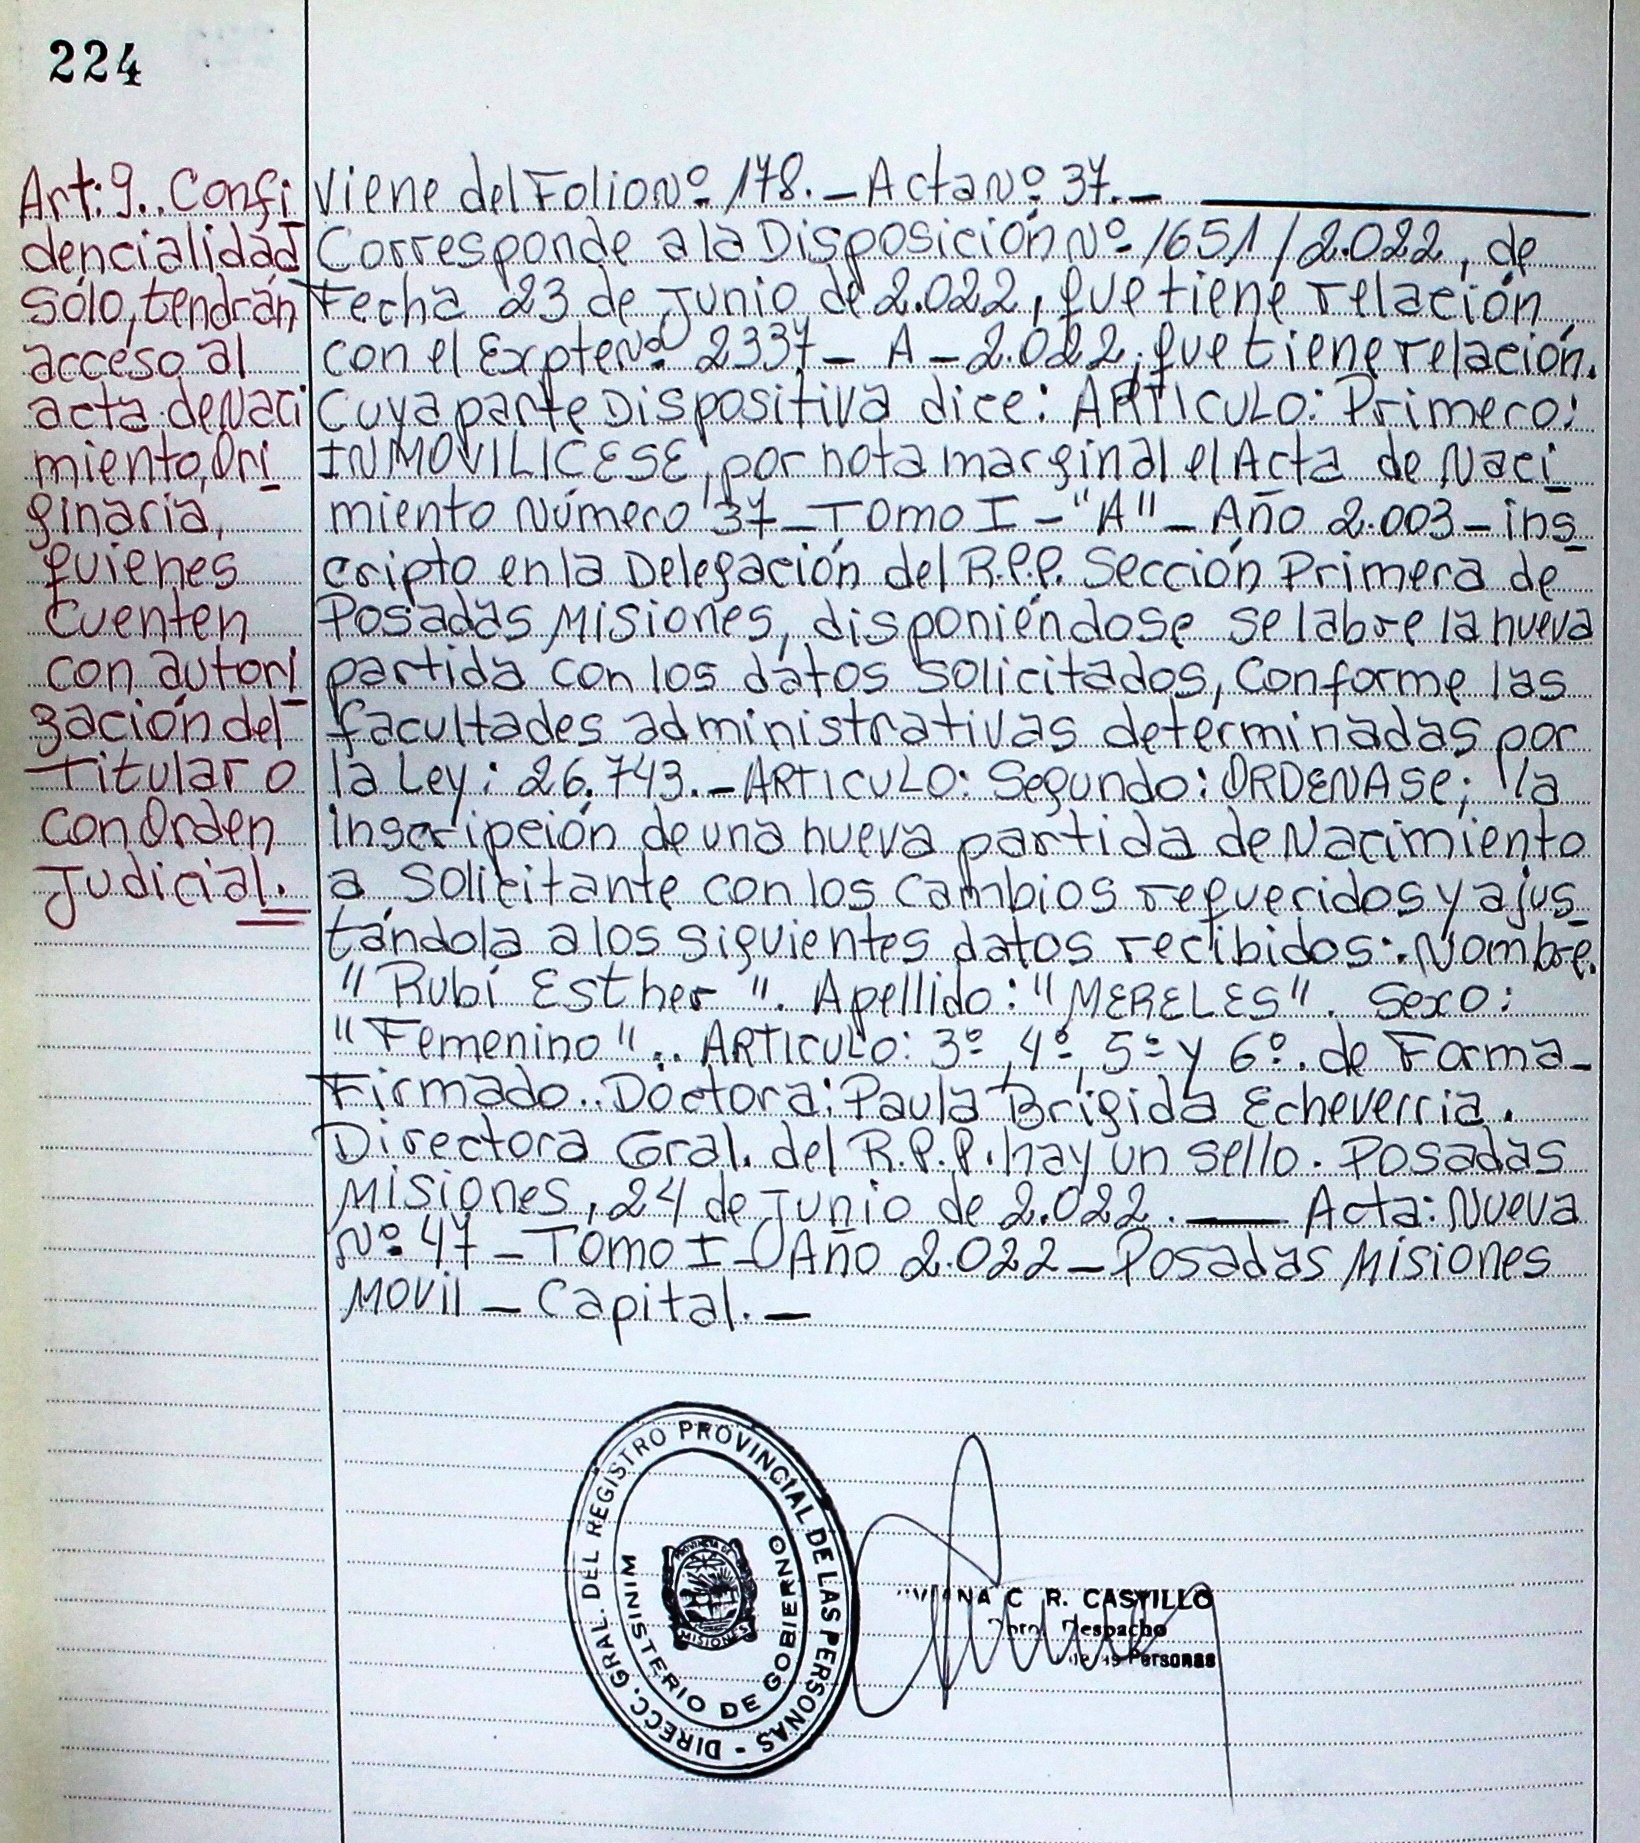 224
Art: 9.. Confi
dencialidad
sólo, tendrán
acceso al
acta de Naci
miento, Ori
ginaria,
quienes
cuenten
con autori
zación del
Titular o
con Orden
Judicial.
Viene del Folio Nº 178. — Acta Nº 37. —
Corresponde a la Disposición Nº 1651/2.022, de
Fecha 23 de Junio de 2.022, que tiene relación
con el Expte Nº 2337 — A — 2.022, que tiene relación.
Cuya parte Dispositiva dice: ARTICULO: Primero:
INMOVILICESE, por nota marginal el Acta de Naci
miento Número 37 — Tomo I — "A" — Año 2.003 — ins
cripto en la Delegación del R.P.P. Sección Primera de
Posadas Misiones, disponiéndose se labre la nueva
partida con los datos solicitados, conforme las
facultades administrativas determinadas por
la Ley: 26.743. — ARTICULO: Segundo: ORDENASE; la
inscripción de una nueva partida de Nacimiento
a Solicitante con los cambios requeridos y ajus
tándola a los siguientes datos recibidos: Nombre.
"Rubí Esther". Apellido: "MERELES". Sexo:
"Femenino".. ARTICULO: 3º, 4º, 5º y 6º. de Forma —
Firmado.. Doctora: Paula Brigida Echeverria.
Directora Gral. del R.P.P. hay un sello. Posadas
Misiones, 24 de Junio de 2.022. — Acta: Nueva
Nº 47 — Tomo I — Año 2.022 — Posadas Misiones
Movil — Capital. —
DIRECC. GRAL. DEL REGISTRO PROVINCIAL DE LAS PERSONAS -
MINISTERIO DE GOBIERNO
PROVINCIA DE
MISIONES
C R. CASTILLO
Despacho
Personas